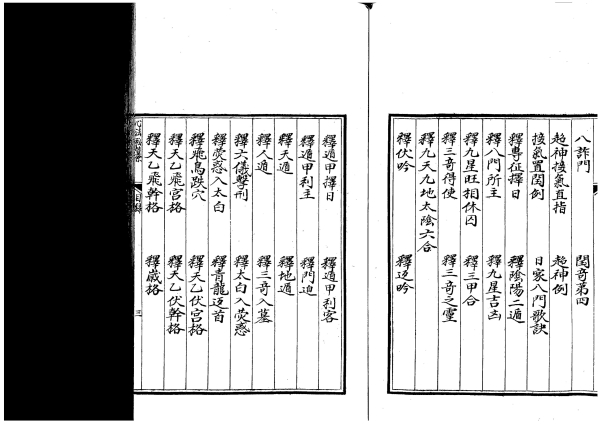 八詐門　閏奇第四
超神接氣直指　超神例
接氣置閏例　日家八門歌訣
釋專征擇日　釋陰陽二遁
釋八門所主　釋九星吉凶
釋九星旺相休囚　釋三甲合
釋三奇得使　釋三奇之靈
釋九天九地太陰六合
釋伏吟　釋返吟
釋遁甲擇日　釋遁甲利客
釋遁甲利主　釋門迫
釋天遁　釋地遁
釋人遁　釋三奇入墓
釋六儀擊刑　太白入熒惑
釋熒惑入太白　釋青龍返首
釋飛鳥跌穴　釋天乙伏宮格
釋天乙飛宮格　釋天乙伏幹格
釋天乙飛幹格　釋歲格
目錄　三